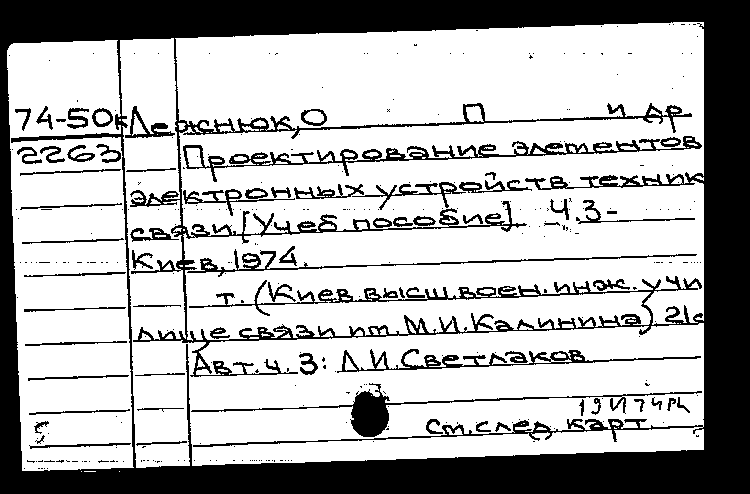 74-50к Лежнюк, О П и др
2263 Проектирование элементов
электронных устройств техник
связи. [Учеб пособие] Ч.3-
Киев, 1974.
т. (Киев.высш.воен.инж.учи
лище связи им. М.И.Калинина) 21с
Авт.ч. 3: Л.И.Светлаков
Ст.след. карт